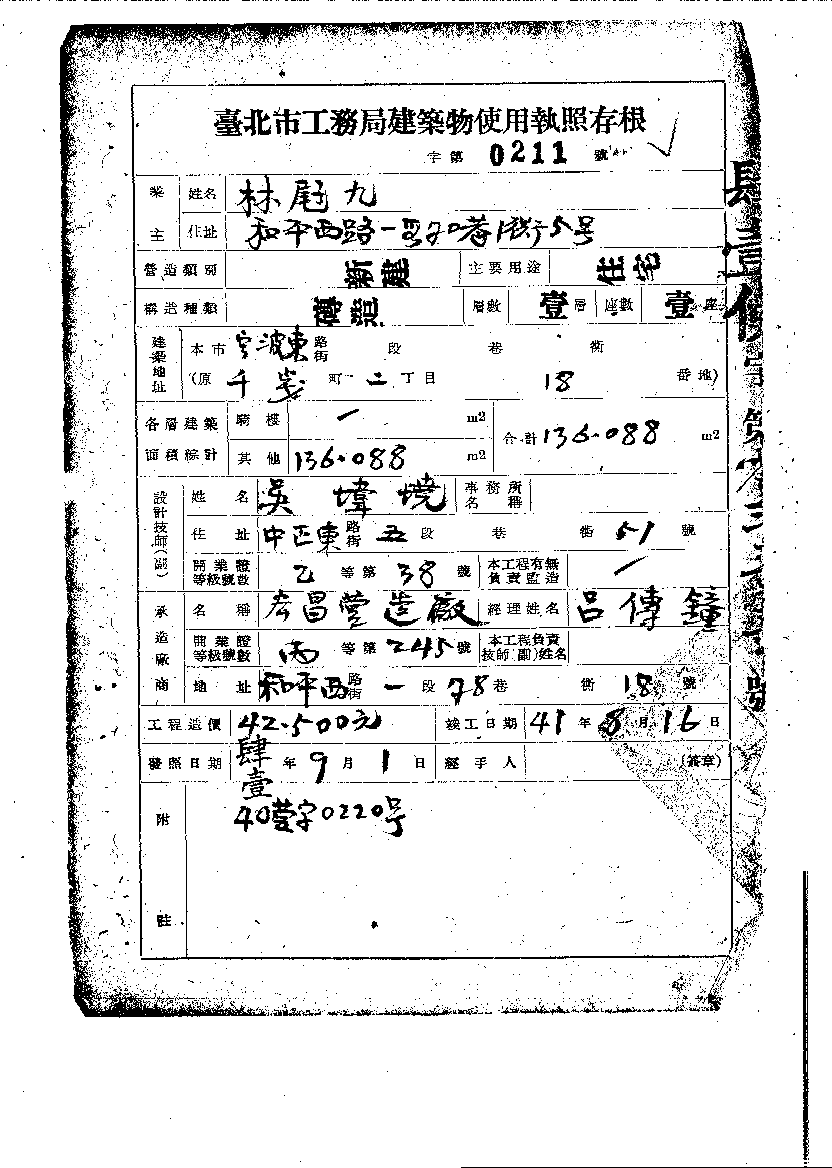 臺北市工務局建築物使用執照存根
字第 0211 號
業主 姓名 林尾九
住址 和平西路一段70巷 5号
營造類別 新建 主要用途 住宅
構造種類 磚造 層數 壹層 座數 壹座
建築地址 本市 寧波東 路街 段 巷 衖
(原 千歲 町 二 丁目 18 番地)
各層建築面積綜計 騎樓 — m2 合計 136.088 m2
其他 136.088 m2
設計技師(副) 姓名 吳 事務所名稱
住址 中正東 路街 五 段 巷 衖 51 號
開業證等級號數 乙 等第 38 號 本工程有無負責監造 —
承造廠商 名稱 宏昌營造廠 經理姓名 呂傳鐘
開業證等級號數 丙 等第 245 號 本工程負責技師(副)姓名
地址 和平西 路街 一 段 78 巷 衖 18 號
工程造價 42.500元 竣工日期 41 年 8 月 16 日
發照日期 肆壹 年 9 月 1 日 經手人 (簽章)
附註 40營字0220号